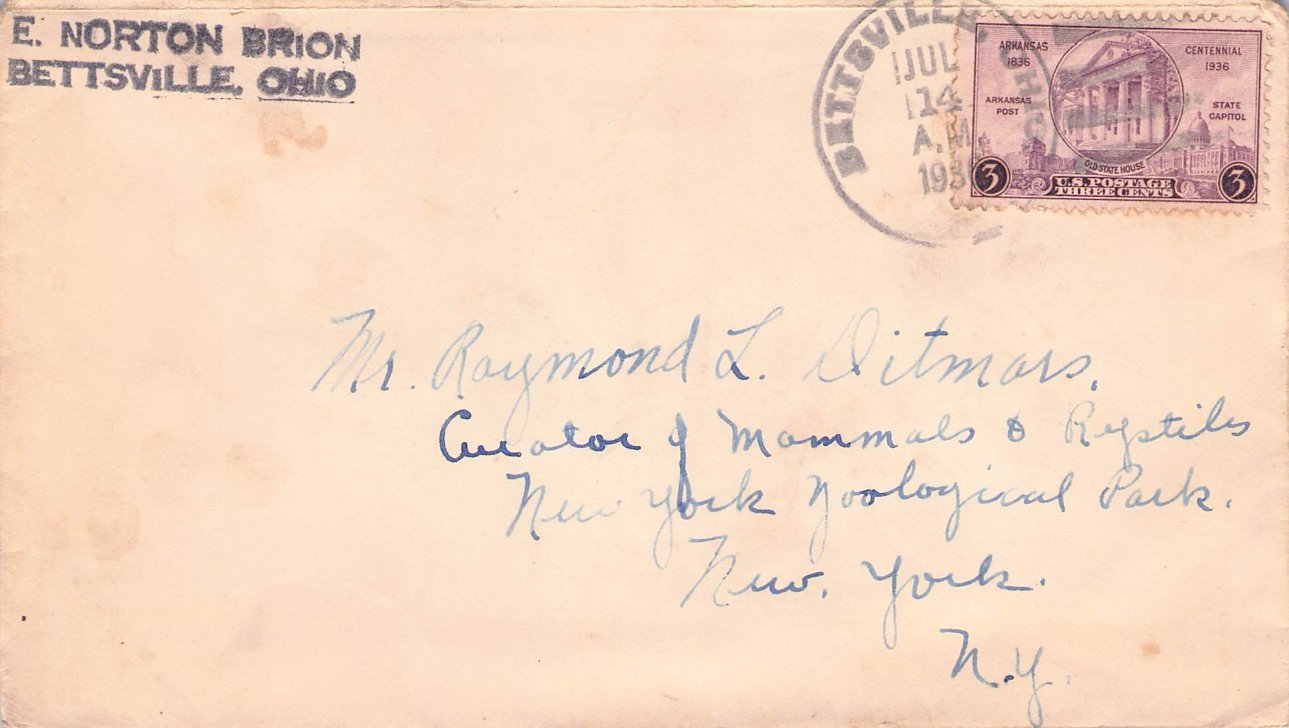 E. NORTON BRION
BETTSVILLE, OHIO
BETTSVILLE. OHIO
JUL
14
A.M
193
ARKANSAS
1836
CENTENNIAL
1936
ARKANSAS
POST
STATE
CAPITOL
OLD STATE HOUSE
3
U.S. POSTAGE
THREE CENTS
3
Mr. Raymond L. Ditmars,
Curator of Mammals & Reptiles
New York Zoological Park.
New. York.
N.Y.